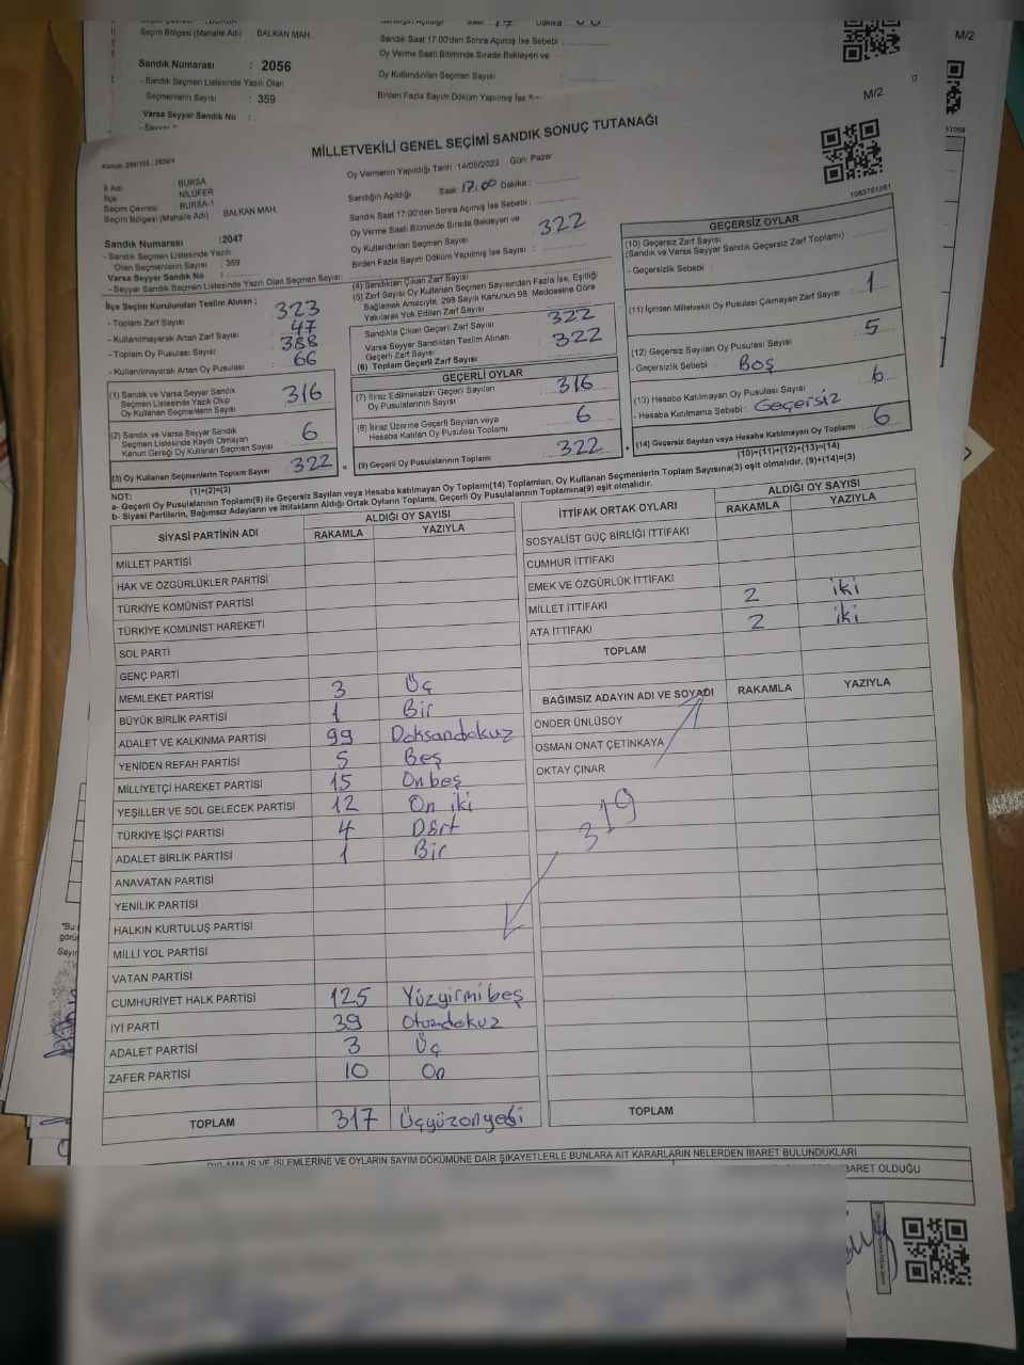 Seçim Bölgesi (Mahalle Adı) BALKAN MAH.
Sandık Numarası : 2056
- Sandık Seçmen Listesinde Yazılı Olan
Seçmenlerin Sayısı : 359
Varsa Seyyar Sandık No :
Sandık Saat 17:00'den Sonra Açılmış İse Sebebi :
Oy Verme Saati Bitiminde Sırada Bekleyen ve
Oy Kullandırılan Seçmen Sayısı
Birden Fazla Sayım Döküm Yapılmış İse
M/2
M/2
MİLLETVEKİLİ GENEL SEÇİMİ SANDIK SONUÇ TUTANAĞI
İl Adı : BURSA
İlçe : NİLÜFER
Seçim Çevresi : BURSA-1
Seçim Bölgesi (Mahalle Adı) BALKAN MAH.
Sandık Numarası :2047
- Sandık Seçmen Listesinde Yazılı
Olan Seçmenlerin Sayısı : 359
Varsa Seyyar Sandık No :
- Seyyar Sandık Seçmen Listesinde Yazılı Olan Seçmen Sayısı:
Oy Vermenin Yapıldığı Tarih :14/05/2023 Gün: Pazar
Sandığın Açıldığı Saat: 17:00 Dakika:
Sandık Saat 17:00'den Sonra Açılmış İse Sebebi :
Oy Verme Saati Bitiminde Sırada Bekleyen ve
Oy Kullandırılan Seçmen Sayısı 322
Birden Fazla Sayım Döküm Yapılmış İse Sayısı :
İlçe Seçim Kurulundan Teslim Alınan ;
- Toplam Zarf Sayısı 323
- Kullanılmayarak Artan Zarf Sayısı 47
- Toplam Oy Pusulası Sayısı 388
- Kullanılmayarak Artan Oy Pusulası 66
(1) Sandık ve Varsa Seyyar Sandık
Seçmen Listesinde Yazılı Olup
Oy Kullanan Seçmenlerin Sayısı 316
(2) Sandık ve Varsa Seyyar Sandık
Seçmen Listesinde Kaydı Olmayan
Kanun Gereği Oy Kullanan Seçmen Sayısı 6
(3) Oy Kullanan Seçmenlerin Toplam Sayısı 322
(1)+(2)=(3)
(4) Sandıktan Çıkan Zarf Sayısı
(5) Zarf Sayısı Oy Kullanan Seçmen Sayısından Fazla İse, Eşitliği
Bağlamak Amacıyla, 298 Sayılı Kanunun 98. Maddesine Göre
Yakılarak Yok Edilen Zarf Sayısı
Sandıkta Çıkan Geçerli Zarf Sayısı 322
Varsa Seyyar Sandıktan Teslim Alınan
Geçerli Zarf Sayısı 322
(6) Toplam Geçerli Zarf Sayısı
GEÇERLİ OYLAR
(7) İtiraz Edilmeksizin Geçerli Sayılan
Oy Pusulalarının Sayısı 316
(8) İtiraz Üzerine Geçerli Sayılan veya
Hesaba Katılan Oy Pusulası Toplamı 6
(9) Geçerli Oy Pusulalarının Toplamı 322
1083751061
GEÇERSİZ OYLAR
(10) Geçersiz Zarf Sayısı
(Sandık ve Varsa Seyyar Sandık Geçersiz Zarf Toplamı)
- Geçersizlik Sebebi :
(11) İçinden Milletvekili Oy Pusulası Çıkmayan Zarf Sayısı 1
(12) Geçersiz Sayılan Oy Pusulası Sayısı 5
- Geçersizlik Sebebi : Boş
(13) Hesaba Katılmayan Oy Pusulası Sayısı 6
- Hesaba Katılmama Sebebi : Geçersiz
(14) Geçersiz Sayılan veya Hesaba Katılmayan Oy Toplamı 6
(10)+(11)+(12)+(13)=(14)
NOT:
a- Geçerli Oy Pusulalarının Toplamı(9) ile Geçersiz Sayılan veya Hesaba katılmayan Oy Toplamı(14) Toplamları, Oy Kullanan Seçmenlerin Toplam Sayısına(3) eşit olmalıdır. (9)+(14)=(3)
b- Siyasi Partilerin, Bağımsız Adayların ve İttifakların Aldığı Ortak Oyların Toplamı, Geçerli Oy Pusulalarının Toplamına(9) eşit olmalıdır.
SİYASİ PARTİNİN ADI ALDIĞI OY SAYISI
RAKAMLA YAZIYLA
MİLLET PARTİSİ
HAK VE ÖZGÜRLÜKLER PARTİSİ
TÜRKİYE KOMÜNİST PARTİSİ
TÜRKİYE KOMÜNİST HAREKETİ
SOL PARTİ
GENÇ PARTİ
MEMLEKET PARTİSİ 3 Üç
BÜYÜK BİRLİK PARTİSİ 1 Bir
ADALET VE KALKINMA PARTİSİ 99 Doksandokuz
YENİDEN REFAH PARTİSİ 5 Beş
MİLLİYETÇİ HAREKET PARTİSİ 15 Onbeş
YEŞİLLER VE SOL GELECEK PARTİSİ 12 On iki
TÜRKİYE İŞÇİ PARTİSİ 4 Dört
ADALET BİRLİK PARTİSİ 1 Bir
ANAVATAN PARTİSİ
YENİLİK PARTİSİ
HALKIN KURTULUŞ PARTİSİ
MİLLİ YOL PARTİSİ
VATAN PARTİSİ
CUMHURİYET HALK PARTİSİ 125 Yüzyirmibeş
İYİ PARTİ 39 Otuzdokuz
ADALET PARTİSİ 3 Üç
ZAFER PARTİSİ 10 On
TOPLAM 317 Üçyüzonyedi
İTTİFAK ORTAK OYLARI ALDIĞI OY SAYISI
RAKAMLA YAZIYLA
SOSYALİST GÜÇ BİRLİĞİ İTTİFAKI
CUMHUR İTTİFAKI
EMEK VE ÖZGÜRLÜK İTTİFAKI
MİLLET İTTİFAKI 2 iki
ATA İTTİFAKI 2 iki
TOPLAM
BAĞIMSIZ ADAYIN ADI VE SOYADI RAKAMLA YAZIYLA
ÖNDER ÜNLÜSOY
OSMAN ONAT ÇETİNKAYA
OKTAY ÇINAR
319
TOPLAM
İŞLEMLERİNE VE OYLARIN SAYIM DÖKÜMÜNE DAİR ŞİKAYETLERLE BUNLARA AİT KARARLARIN NELERDEN İBARET BULUNDUKLARI
BARET OLDUĞU